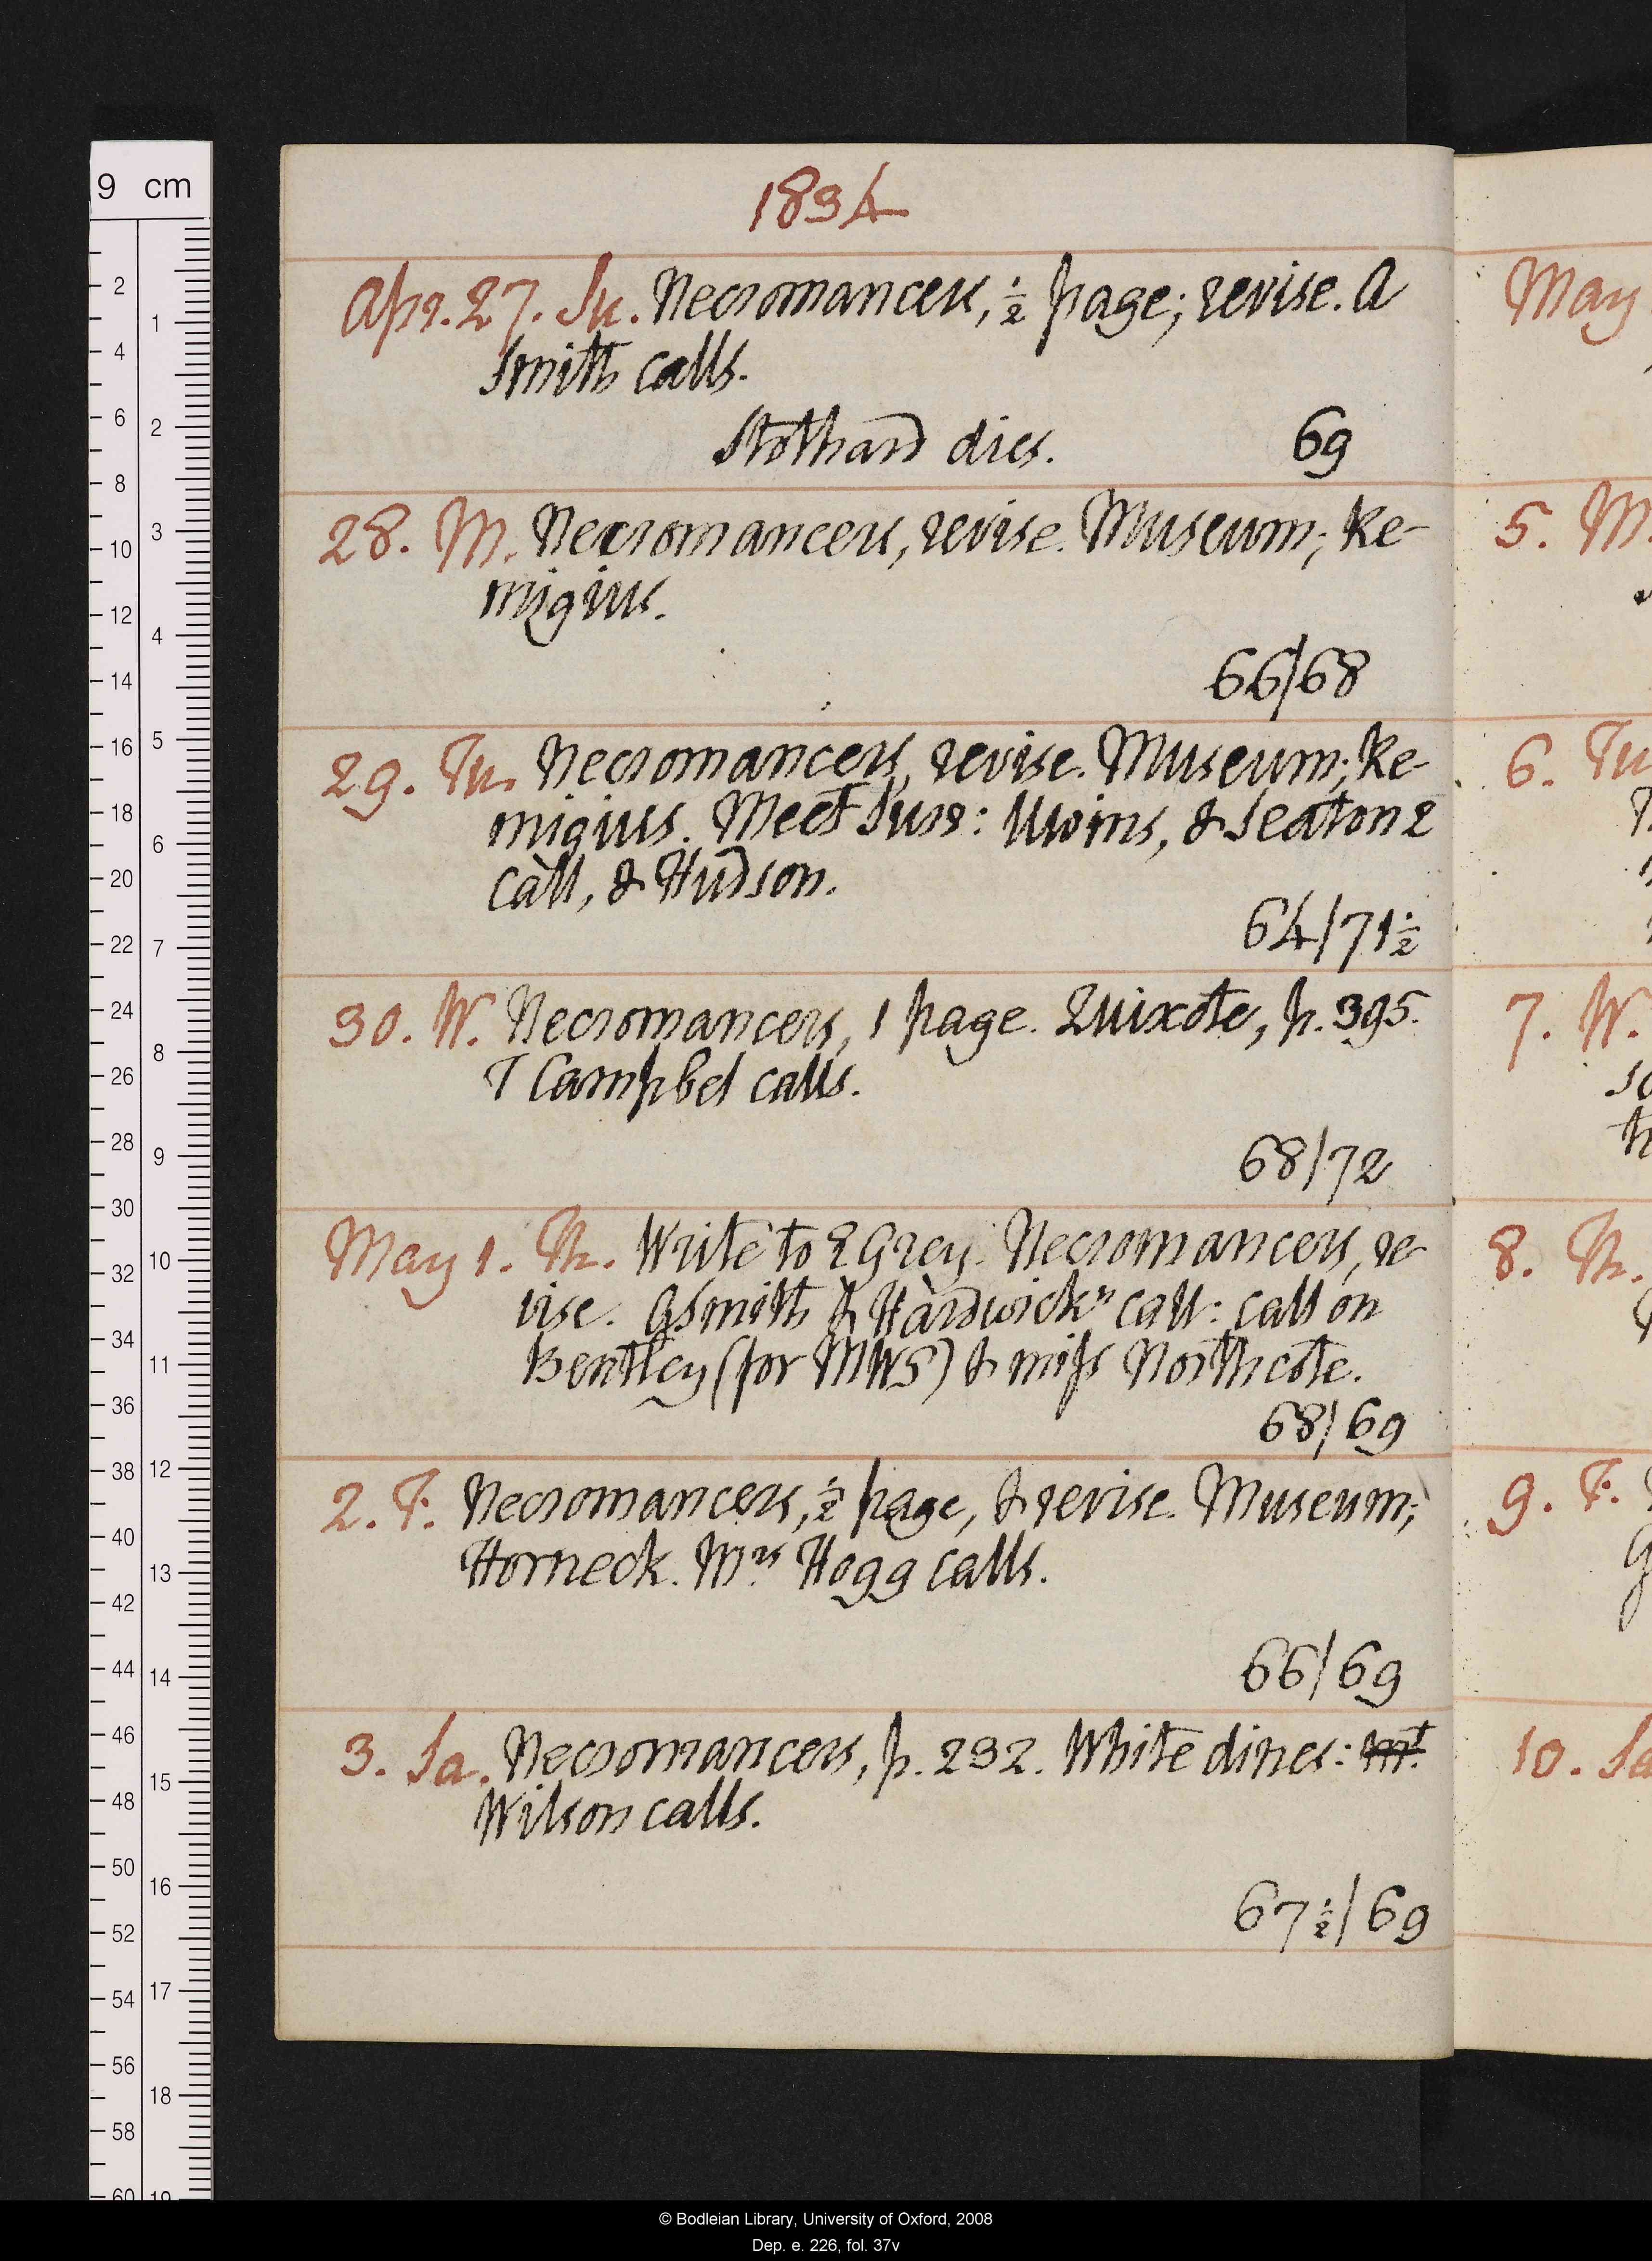 1834
Apr. 27. Su. Necromancers, ½ page; revise. A
Smith calls.
Stothard dies. 69
28. M. Necromancers, revise. Museum; Re-
migius.
66/68
29. Tu. Necromancers, revise. Museum; Re-
migius. Meet Surr: Uwins, & Seaton 2
call, & Hudson.
64/71½
30. W. Necromancers, 1 page. Quixote, p. 395.
T Campbel calls.
68/72
May 1. Th. Write to E Grey. Necromancers, re-
vise. G Smith & Hardwicke call: call on
Bentley (for MWS) & miss Northcote.
68/69
2. F. Necromancers, ½ page, & revise. Museum;
Horneck. Mrs Hogg calls.
66/69
3. Sa. Necromancers, p. 232. White dines:
Wilson calls.
67½/69
May
5. M.
6. Tu
7. W.
8. Th.
9. F.
10. Sa
9 cm
2 4 6 8 10 12 14 16 18 20 22 24 26 28 30 32 34 36 38 40 42 44 46 48 50 52 54 56 58 60
1 2 3 4 5 6 7 8 9 10 11 12 13 14 15 16 17 18 19
© Bodleian Library, University of Oxford, 2008
Dep. e. 226, fol. 37v